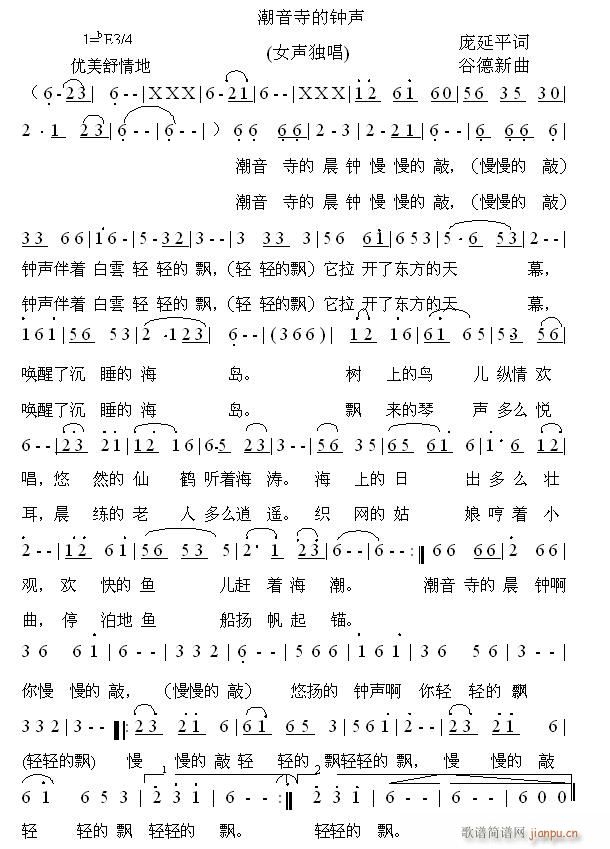 潮音寺的钟声
1=ᵇE3/4
(女声独唱)
庞延平词
优美舒情地
谷德新曲
(6-23|6--|XXX|6-21|6--|XXX|12 61 60|56 35 30|
2·1 23|6--|6--|)66 66|2-3|2-21|6--|6 66 6|
潮音 寺的 晨 钟 慢 慢的 敲，(慢慢的 敲)
潮音 寺的 晨 钟 慢 慢的 敲，(慢慢的 敲)
33 66|16|5-32|3--|3 33 3|56 61|653|5·6 53|2--|
钟声伴着 白雲 轻 轻的 飘，(轻 轻的飘)它拉 开了东方的天 幕，
钟声伴着 白雲 轻 轻的 飘，(轻 轻的飘)它拉 开了东方的天 幕，
161|56 53|2·123|6--|(366)|12 16|61 65|53· 56|
唤醒了沉 睡的 海 岛。 树 上的鸟 儿 纵情 欢
唤醒了沉 睡的 海 岛。 飘 来的琴 声 多么 悦
6--|23 21|12 16|6·5 23|3--|56 53|65 61|6 12|
唱，悠 然的 仙 鹤 听着海 涛。海 上的 日 出 多 么 壮
耳，晨 练的 老 人 多么逍 遥。织 网的 姑 娘 哼 着 小
2--|12 61|56 53|2·3 1 23|6--|6--:‖66 66|2 66|
观，欢 快的 鱼 儿赶 着 海 潮。 潮音 寺的 晨 钟啊
曲，停 泊地 鱼 船扬 帆 起 锚。
36 61|6--|332|6--|566|161|36 56|3--|
你慢 慢的 敲， (慢慢的 敲) 悠扬的 钟声啊 你轻 轻的 飘
332|3--‖:23 21 6|61 65 3|512|2-2|23 21 6|
(轻轻的飘) 慢 慢的 敲 轻 轻的 飘轻轻的 飘， 慢 慢的 敲
61 653|1 231|6--:‖2 231|6--|6--|600‖
轻 轻的 飘 轻轻的 飘。 轻轻的 飘。
歌谱简谱网
jianpu.cn